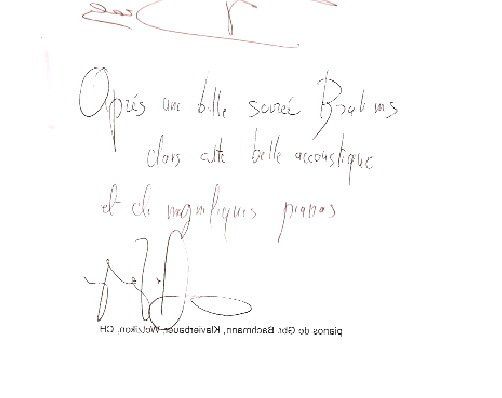 Après une belle soirée Brahms
dans cette belle accoustique
et de magnifiques pianos
pianos de Gbr. Bachmann, Klavierbauer, Wetzikon, CH